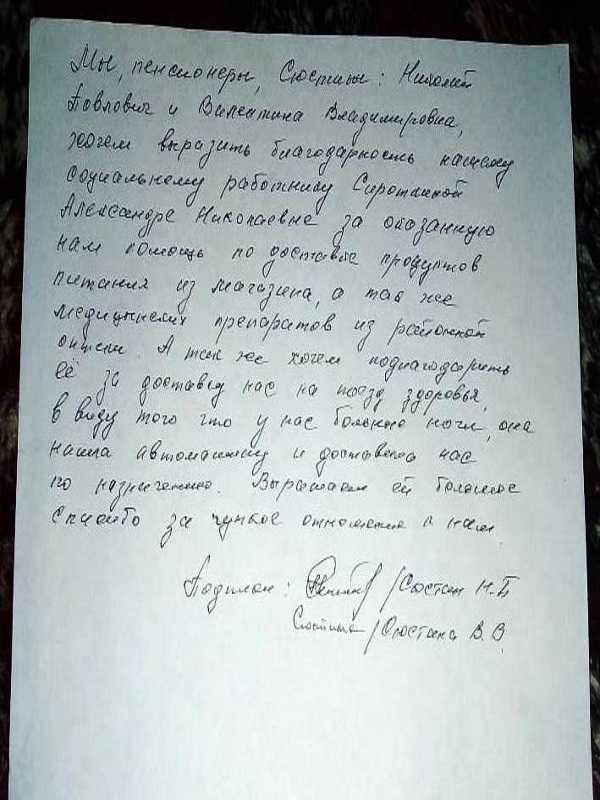 Мы, пенсионеры, Сюстины: Николай
Павлович и Валентина Владимировна,
хотем выразить благодарность нашему
социальному работнику Сироткиной
Александре Николаевне за оказанную
нам помощь по доставке продуктов
питания из магазина, а так же
медицинских препаратов из районной
аптеки. А так же хотем поблагодарить
её за доставку нас на поезд здоровья,
в виду того что у нас больные ноги, она
нашла автомашину и доставила нас
по назначению. Выражаем ей большое
спасибо за чуткое отношение к нам.
/Сюстин Н.П
Сюстина /Сюстина В.В.